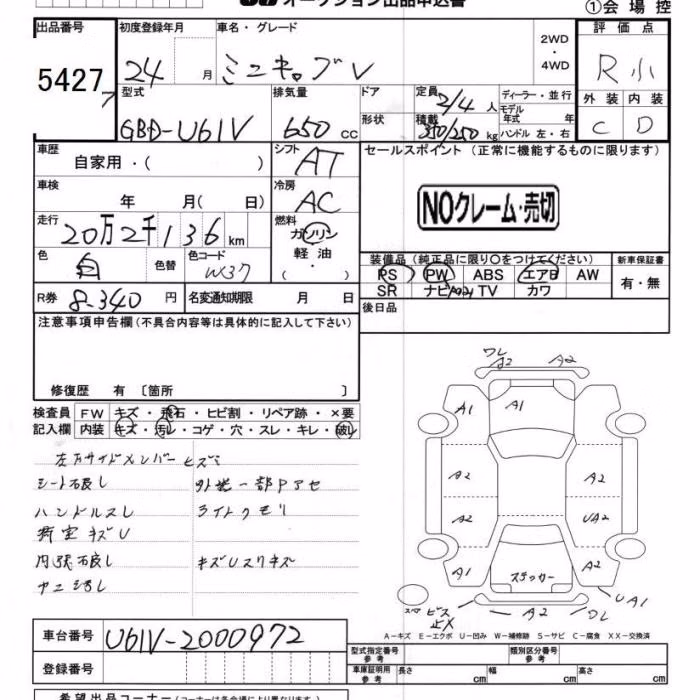 オークション出品申込書
①会場控
出品番号 初度登録年月 車名・グレード 評価点
5427 24 月 ミニキャブV 2WD・4WD R小
型式 排気量 ドア 定員 2/4 人 ディーラー・並行 外装 内装
GBD-U61V 650 cc 形状 積載 350/250 kg モデル年式 年 C D
ハンドル 左・右
車歴 シフト セールスポイント (正常に機能するものに限ります)
自家用・( ) AT
車検 冷房
年 月( 日) AC NOクレーム・売切
走行 燃料
20万2千136 km ガソリン
軽油
( ・ )
色 白 色替 色コード W37
装備品(純正品に限り○をつけてください) 新車保証書
PS PW ABS エアB AW 有・無
SR ナビ TV カワ
R券 8,340 円 名変通知期限 月 日 後日品
注意事項申告欄(不具合内容等は具体的に記入して下さい)
修復歴 有 〔箇所 〕
検査員 FW キズ・飛石・ヒビ割・リペア跡・×要
記入欄 内装 キズ・汚レ・コゲ・穴・スレ・キレ・破レ
左右サイドメンバー ヒズミ
シート破レ 外装一部Pアセ
ハンドルスレ ライトクモリ
荷室キズU
内張破レ キズUスリキズ
ヤニ汚レ
ワレ
A2 A2
A1 A1 A1
A2 A2
A2 UA2
A1 ステッカー A2
スペア ビス止X A2 ワレ UA1
A-キズ E-エクボ U-凹み W-補修跡 S-サビ C-腐食 XX-交換済
車台番号 U61V-2000972
型式指定番号 参考 類別区分番号 参考
登録番号 車庫証明用 参考 長さ cm 幅 cm 高さ cm
希望出品コーナー(コーナーは各会場により異なります。)